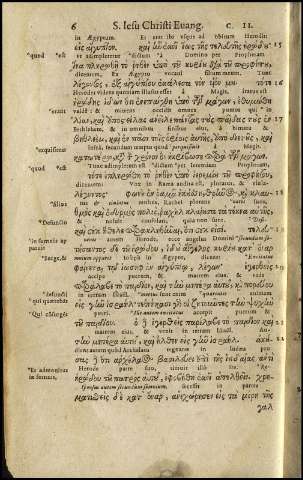 6 S. Iesu Christi Evang. C. II.
in Ægyptum. Et erat ibi usque ad obitum Herodis
εἰς αἴγυπτον. καὶ ἦν ἐκεῖ ἕως τῆς τελευτῆς ἡρώδου 15
*quod *est ut adimpleretur *dictum à Domino per Prophetam
ἵνα πληρωθῇ τὸ ῥηθὲν ὑπὸ τοῦ κυρίου διὰ τοῦ προφήτου,
dicentem, Ex Ægypto vocavi filium meum. Tunc
λέγοντος, ἐξ αἰγύπτου ἐκάλεσα τὸν υἱόν μου. τότε 16
Herodes videns quoniam illusus esset à Magis, iratus est
ἡρώδης ἰδὼν ὅτι ἐνεπαίχθη ὑπὸ τῶν μάγων, ἐθυμώθη
*erant valde: & mittens occidit omnes pueros qui in
λίαν, καὶ ἀποστείλας ἀνεῖλε πάντας τοὺς παῖδας τοὺς ἐν
Bethlehem, & in omnibus finibus eius, à bimatu &
βηθλεὲμ, καὶ ἐν πᾶσι τοῖς ὁρίοις αὐτῆς, ἀπὸ διετοῦς καὶ
*exquisierat infra, secundum tempus quod à Magis.
κατωτέρω, κατὰ τὸν χρόνον ὃν ἠκρίβωσε παρὰ τῶν μάγων.
*quod *est Tunc adimpletum est *dictum ab Ieremia Prophetam,
τότε ἐπληρώθη τὸ ῥηθὲν ὑπὸ ἱερεμίου τοῦ προφήτου, 17
dicentem: Vox in Rama audita est, ploratus, &
λέγοντος· φωνὴ ἐν ῥαμᾷ ἠκούσθη, καὶ κλαυ- 18
& ululatus multus, Rachel plorans filios suos,
θμὸς καὶ ὀδυρμὸς πολύς, ῥαχὴλ κλαίουσα τὰ τέκνα αὑτῆς,
*Defuncto
καὶ οὐκ ἤθελε παρακληθῆναι, ὅτι οὐκ εἰσί. 19
*in somnis ap paruit autem Herode, ecce angelus Domini
τοῦ ἡρώδου, ἰδοὺ ἄγγελος κυρίου κατ' ὄναρ
*Surge, & Ioseph in Ægypto, dicens:
φαίνεται τῷ ἰωσὴφ ἐν αἰγύπτῳ, λέγων· 20
accipe puerum, & matrem eius, & vade
παράλαβε τὸ παιδίον, καὶ τὴν μητέρα αὐτοῦ, καὶ πορεύου
*defuncti qui quærebāt in terram Israël.
εἰς γῆν ἰσραήλ· τεθνήκασι γὰρ οἱ ζητοῦντες τὴν ψυχὴν
*Qui cōsurgēs pueri. accepit puerum, &
τοῦ παιδίου. ὁ δὲ ἐγερθεὶς παρέλαβε τὸ παιδίον καὶ 21
matrem eius, & venit in terram Israël.
τὴν μητέρα αὐτοῦ, καὶ ἦλθεν εἰς γῆν ἰσραήλ. 22
autem quod Archelaus regnaret in Iudæa pro
σας δὲ ὅτι ἀρχέλαος βασιλεύει ἐπὶ τῆς ἰουδαίας ἀντὶ
*Et admonitus in somnis, Herode patre suo, timuit illo ire.
ἡρώδου τοῦ πατρὸς αὐτοῦ, ἐφοβήθη ἐκεῖ ἀπελθεῖν. χρη-
autem secessit in partes
ματισθεὶς δὲ κατ' ὄναρ, ἀνεχώρησεν εἰς τὰ μέρη τῆς
γαλ